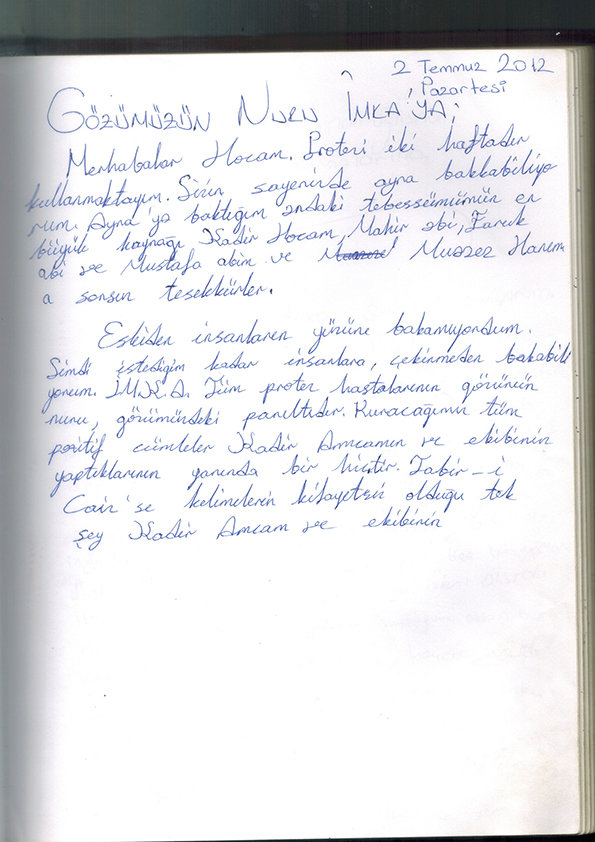 2 Temmuz 2012
Pazartesi
GÖZÜMÜZÜN NURU İMKA'YA;
Merhabalar Hocam. Protezi iki haftadır
kullanmaktayım. Sizin sayenizde ayna bakkabiliyo
rum. Ayna'ya baktığım andaki tebessümümün en
büyük kaynağı Kadir Hocam, Mahir abi, Faruk
abi ve Mustafa abim ve Muazzez Hanım
a sonsuz teşekkürler.
Eskiden insanların yüzüne bakamıyordum.
Şimdi istediğim kadar insanlara, çekinmeden bakabili
yorum. İ.M.K.A. Tüm protez hastalarının gözünün
nuru, gözümüzdeki parıltıdır. Kuracağımız tüm
pozitif cümleler Kadir Amcamın ve ekibinin
yaptıklarının yanında bir hiçtir. Tabir-i
Caiz'se kelimelerin kifayetsiz olduğu tek
şey Kadir Amcam ve ekibinin